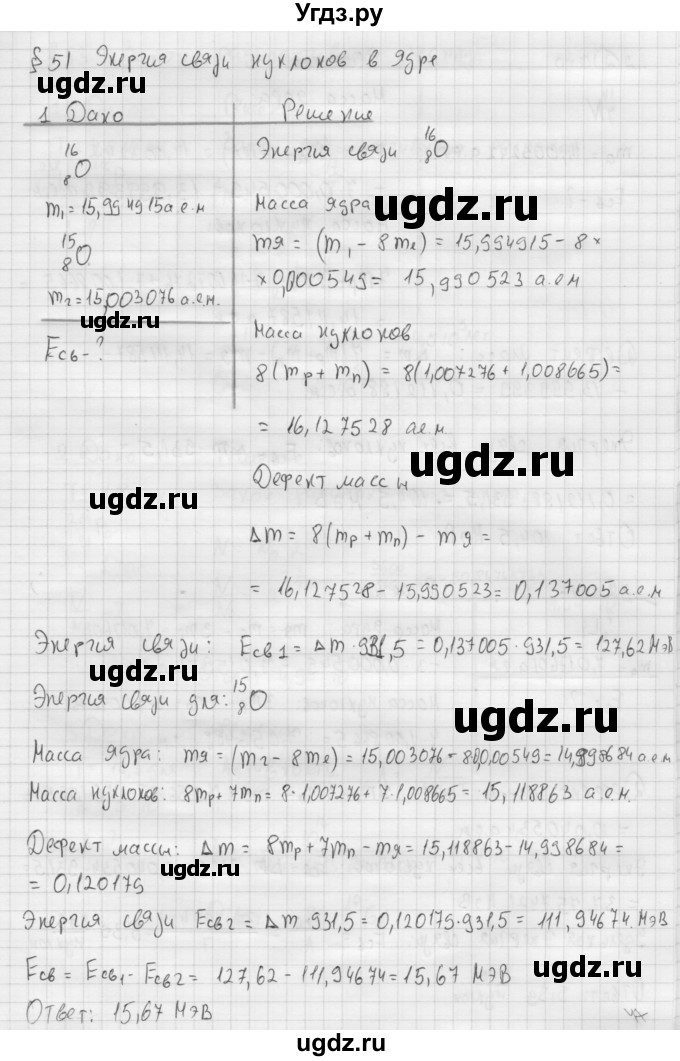 Угдз.ру
§ 51 Энергия связи нуклонов в ядре
ugdz.ru
ugdz.ru
1 Дано
16
8 O
m1 = 15,994915 а.е.м
15
8 O
m2 = 15,003076 а.е.м.
Eсв - ?
Решение
Энергия связи 16 8 O
ugdz.ru
Масса ядра
mя = (m1 - 8me) = 15,994915 - 8 ×
× 0,000549 = 15,990523 а.е.м
Масса нуклонов
8(mp + mn) = 8(1,007276 + 1,008665) =
= 16,127528 а.е.м.
ugdz.ru
Дефект массы
ugdz.ru
Δm = 8(mp + mn) - mя =
= 16,127528 - 15,990523 = 0,137005 а.е.м
Энергия связи: Eсв1 = Δm · 931,5 = 0,137005 · 931,5 = 127,62 МэВ
ugdz.ru
Энергия связи для: 15 8 O
ugdz.ru
Масса ядра: mя = (m2 - 8me) = 15,003076 - 8·0,00549 = 14,998684 а.е.м
Масса нуклонов: 8mp + 7mn = 8 · 1,007276 + 7 · 1,008665 = 15,118863 а.е.м.
Дефект массы: Δm = 8mp + 7mn - mя = 15,118863 - 14,998684 =
ugdz.ru
= 0,120179
Энергия связи Eсв2 = Δm · 931,5 = 0,120179 · 931,5 = 111,94674 МэВ
Eсв = Eсв1 - Eсв2 = 127,62 - 111,94674 = 15,67 МЭВ
ugdz.ru
Ответ: 15,67 МэВ
ugdz.ru